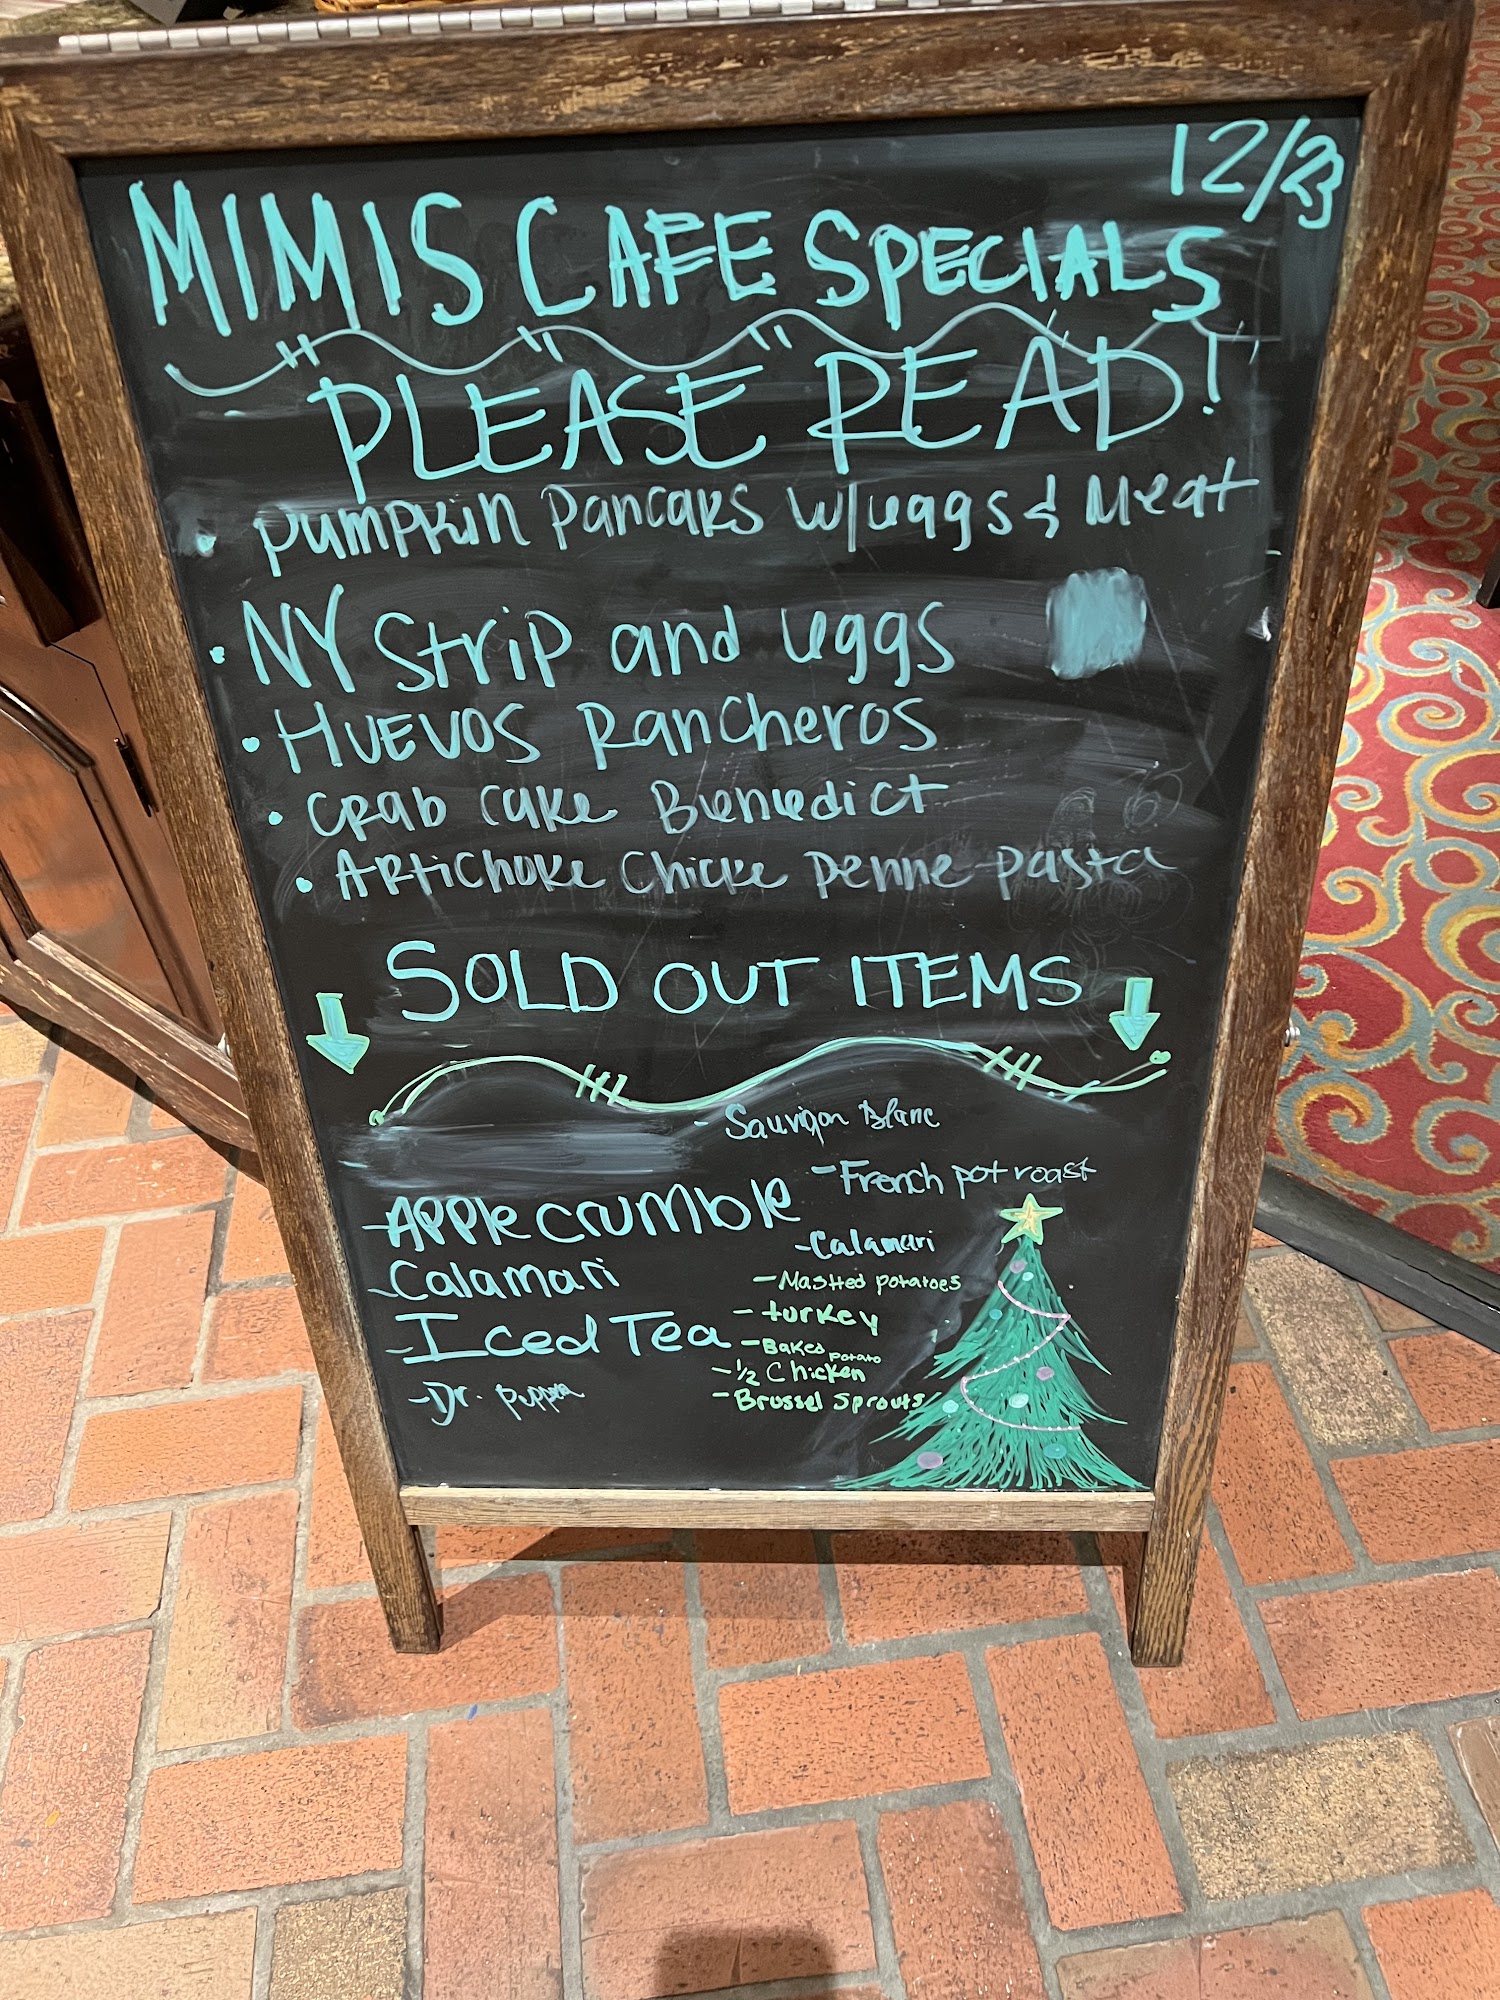 12/23
MIMIS CAFE SPECIALS
PLEASE READ!
• Pumpkin Pancaks w/eggs & Meat
• NY Strip and eggs
• HUEVOS Rancheros
• Crab Cake Benedict
• Artichoke Chicke Penne Pasta
SOLD OUT ITEMS
- Apple crumble
- Calamari
- Iced Tea
- Dr.
- Sauvigon Blanc
- French pot roast
- Calamari
- Mashed potatoes
- turkey
- Baked potato
- 1/2 Chicken
- Brussel Sprouts